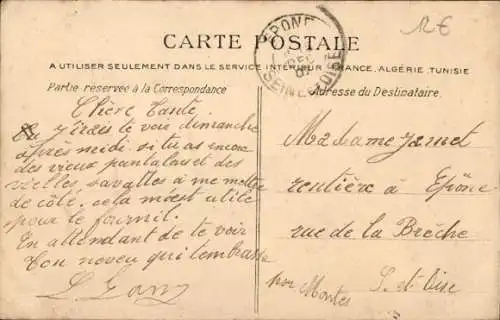 CARTE POSTALE
A UTILISER SEULEMENT DANS LE SERVICE INTÉRIEUR FRANCE, ALGÉRIE, TUNISIE
Partie réservée à la Correspondance
Adresse du Destinataire.
EPONE
SEINE-ET-OISE
Chère Tante
J'irais te voir dimanche
après midi. si tu as encore
des vieux pantalas et des
vielles savattes à me mettre
de côte. cela m'est utile
pour le fournil.
En attendant de te voir
Ton neveu qui t'embrasse
Madame Jamet
rentière à Epône
rue de la Brèche
par Mantes
S.-et-Oise